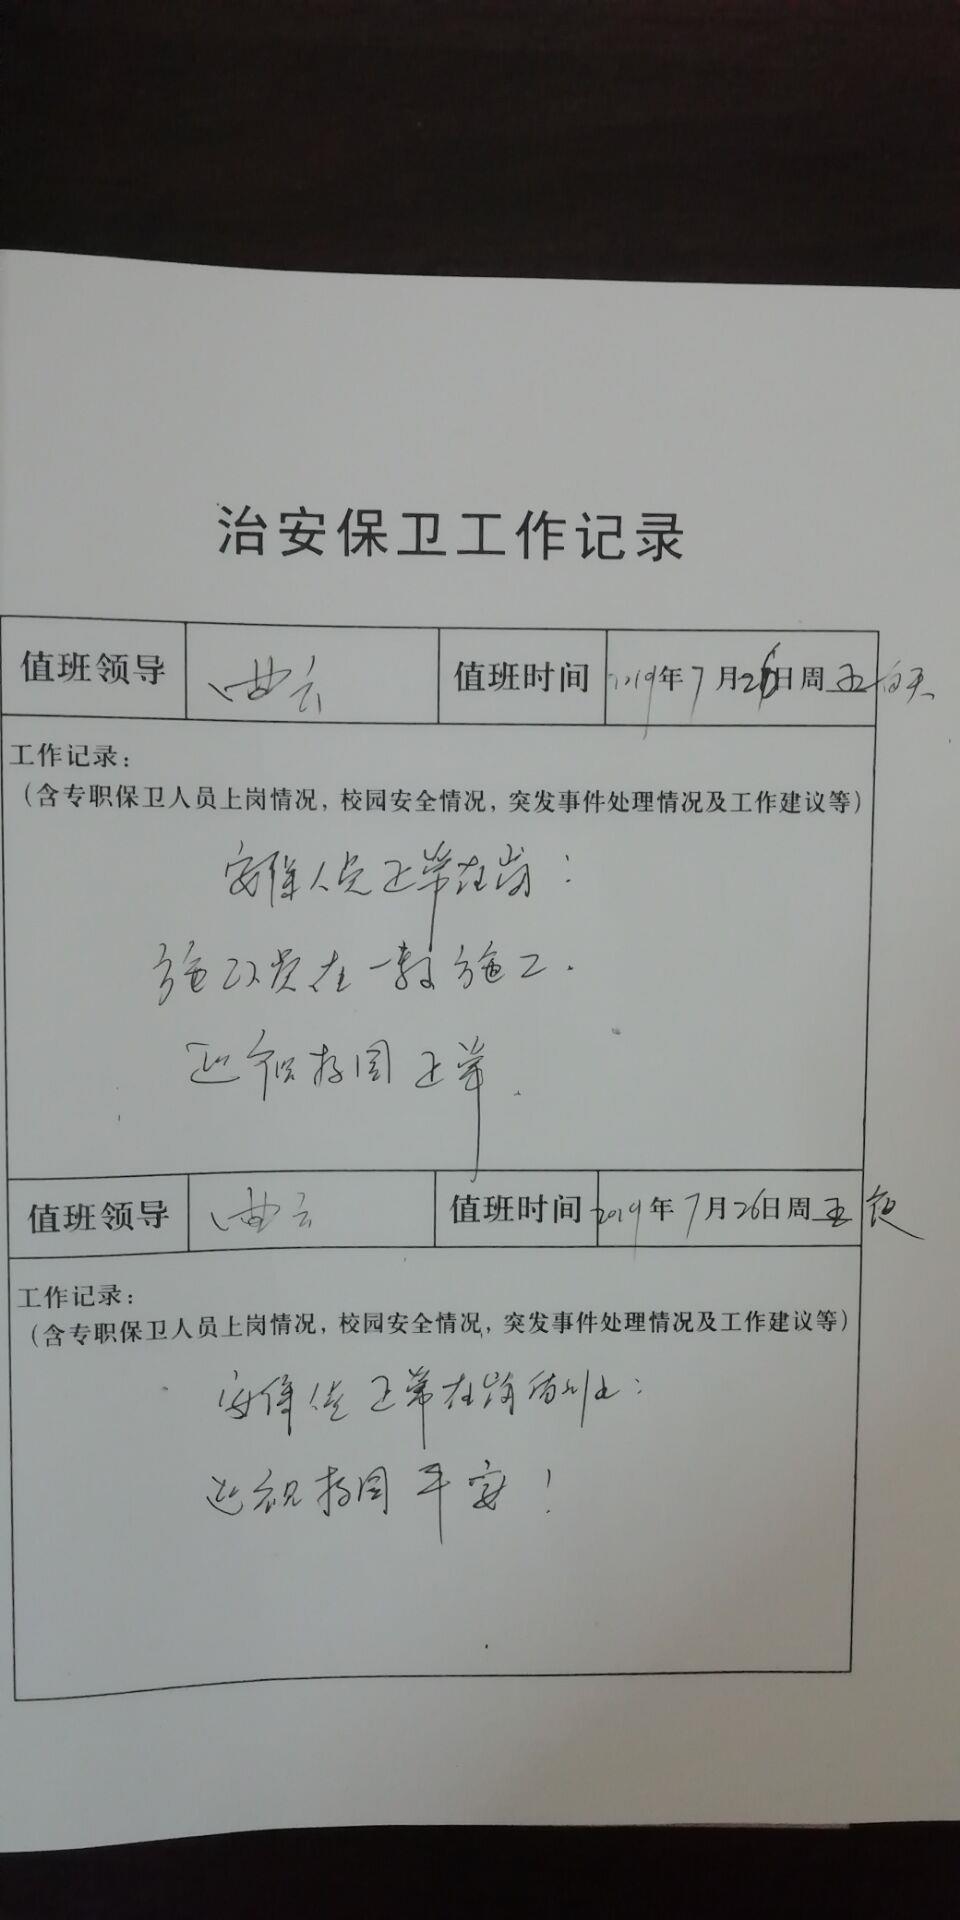 治安保卫工作记录
值班领导 曲云 值班时间 2019年7月26日周五白天
工作记录：
（含专职保卫人员上岗情况，校园安全情况，突发事件处理情况及工作建议等）
安保人员正常在岗：
施工人员在一教施工.
巡视校园正常.
值班领导 曲云 值班时间 2019年7月26日周五夜
工作记录：
（含专职保卫人员上岗情况，校园安全情况，突发事件处理情况及工作建议等）
安保人员正常在岗
巡视校园平安！